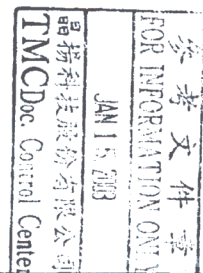 參考文件章
FOR INFORMATION ONLY
JAN 15 2003
晶揚科技股份有限公司
TMC Doc. Control Center